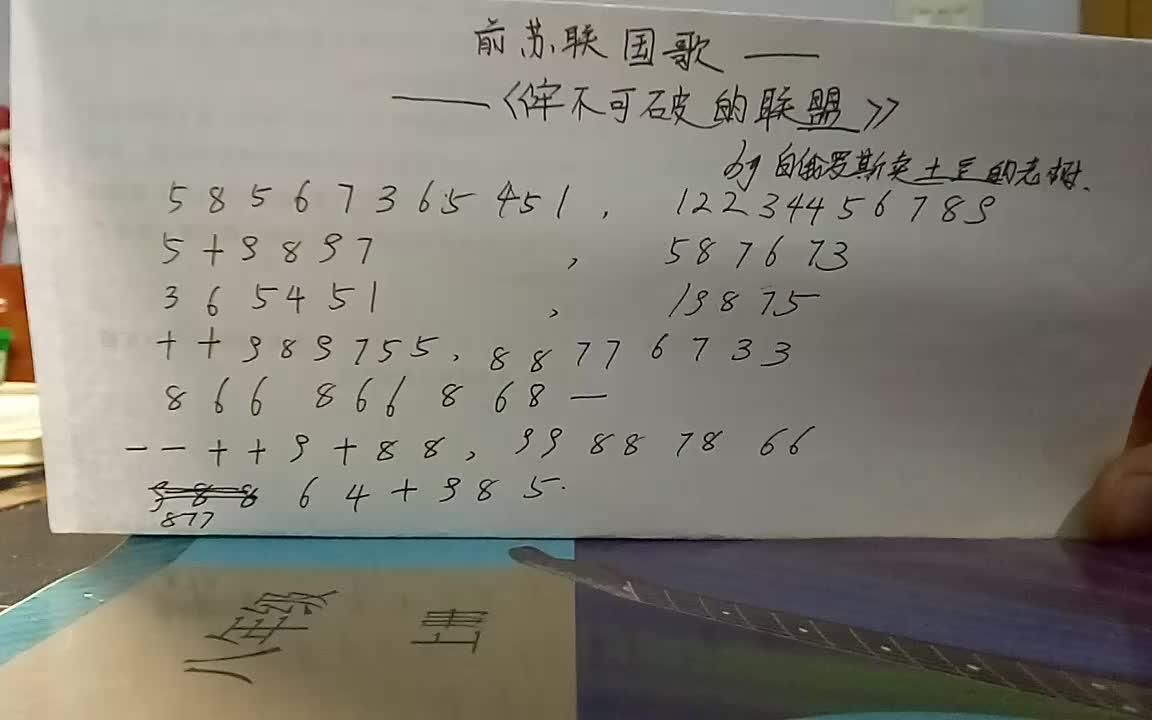 前苏联国歌——
——《牢不可破的联盟》
by 白俄罗斯卖土豆的老树.
5 8 5 6 7 3 6 5 4 5 1 , 1 2 2 3 4 4 5 6 7 8 9
5 + 9 8 9 7 , 5 8 7 6 7 3
3 6 5 4 5 1 , 1 9 8 7 5
+ + 9 8 9 7 5 5 , 8 8 7 7 6 7 3 3
8 6 6 8 6 6 8 6 8 —
— — + + 9 + 8 8 , 9 9 8 8 7 8 6 6
9 8 8 6 4 + 9 8 5 .
8 7 7
八年级 上册